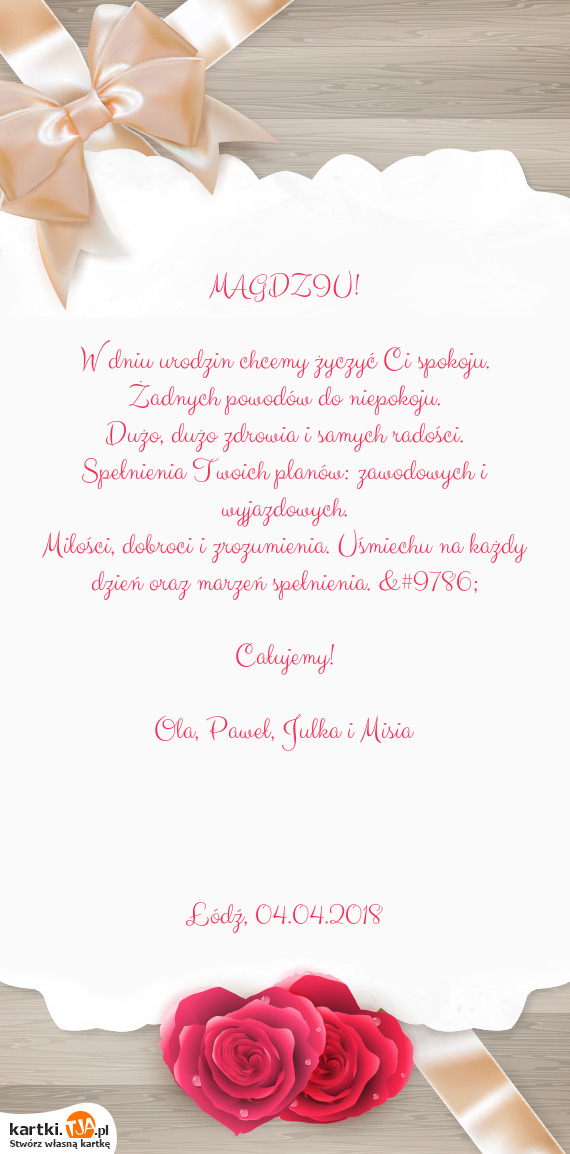 MAGDZIU!
W dniu urodzin chcemy życzyć Ci spokoju.
Żadnych powodów do niepokoju.
Dużo, dużo zdrowia i samych radości.
Spełnienia Twoich planów: zawodowych i
wyjazdowych.
Miłości, dobroci i zrozumienia. Uśmiechu na każdy
dzień oraz marzeń spełnienia. &#9786;
Całujemy!
Ola, Paweł, Julka i Misia
Łódź, 04.04.2018
kartki.TJA.pl
Stwórz własną kartkę